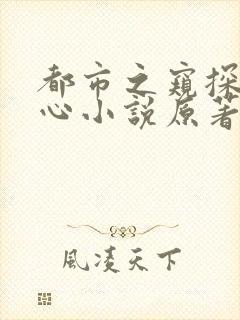 都市之窺探
心小說原著
風凌天下